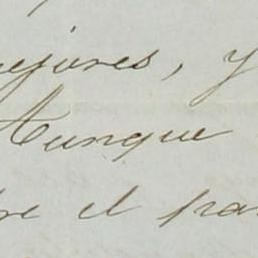 ejores, y
Aunque
re el pa